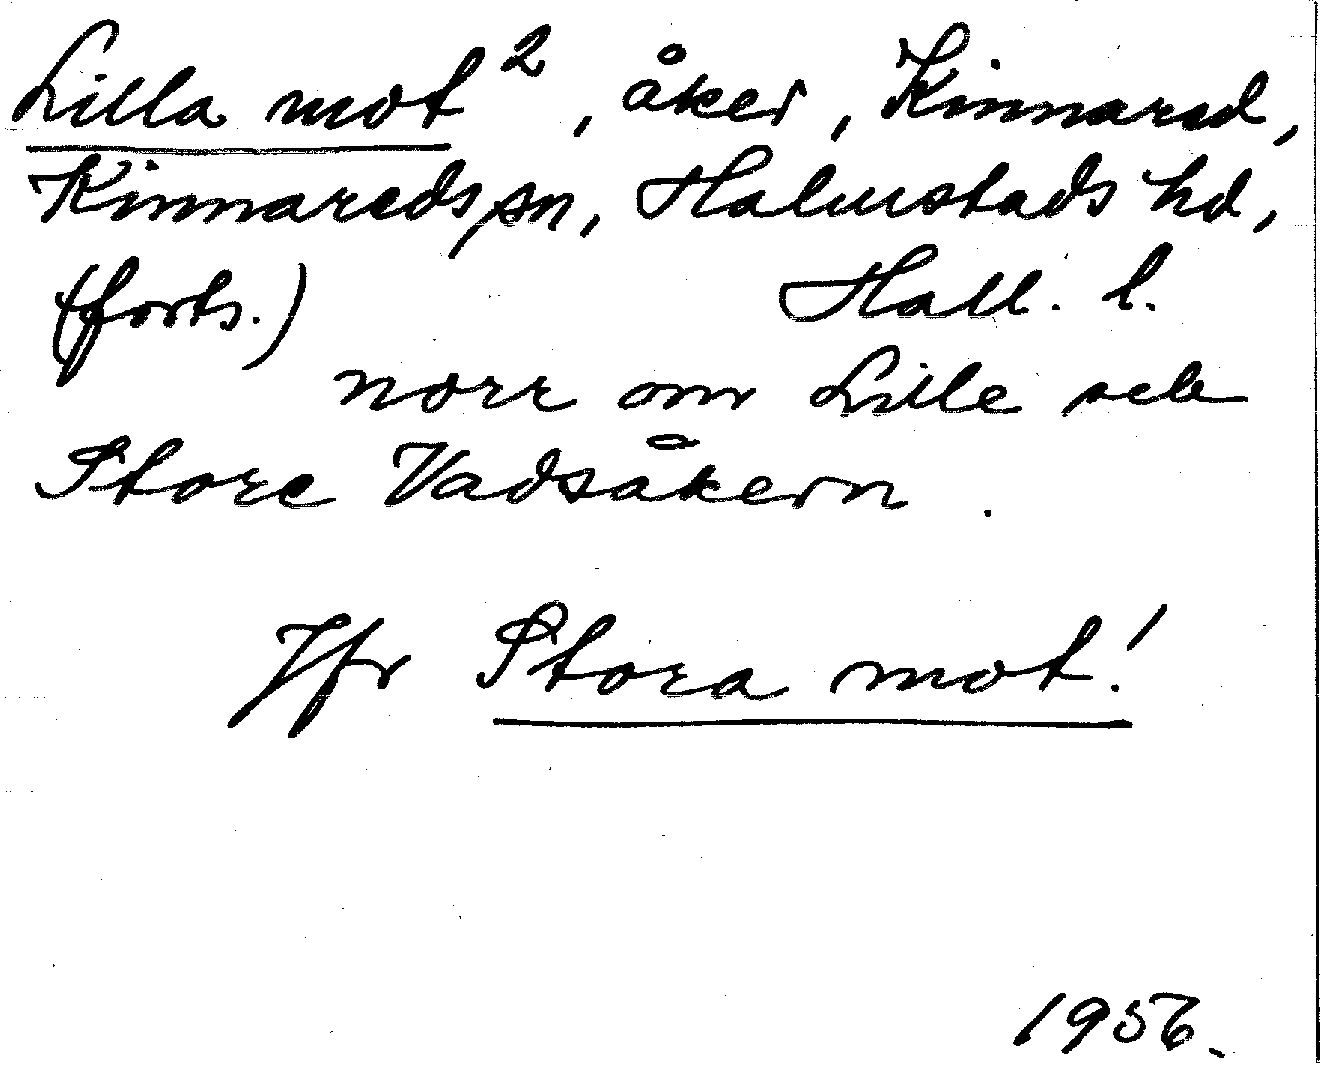 Lilla mot², åker, Kinnared,
Kinnareds sn, Halmstads hd,
(forts.) Hall. l.
norr om Lille och
Store Vadsåkern.
Jfr Stora mot!
1956.